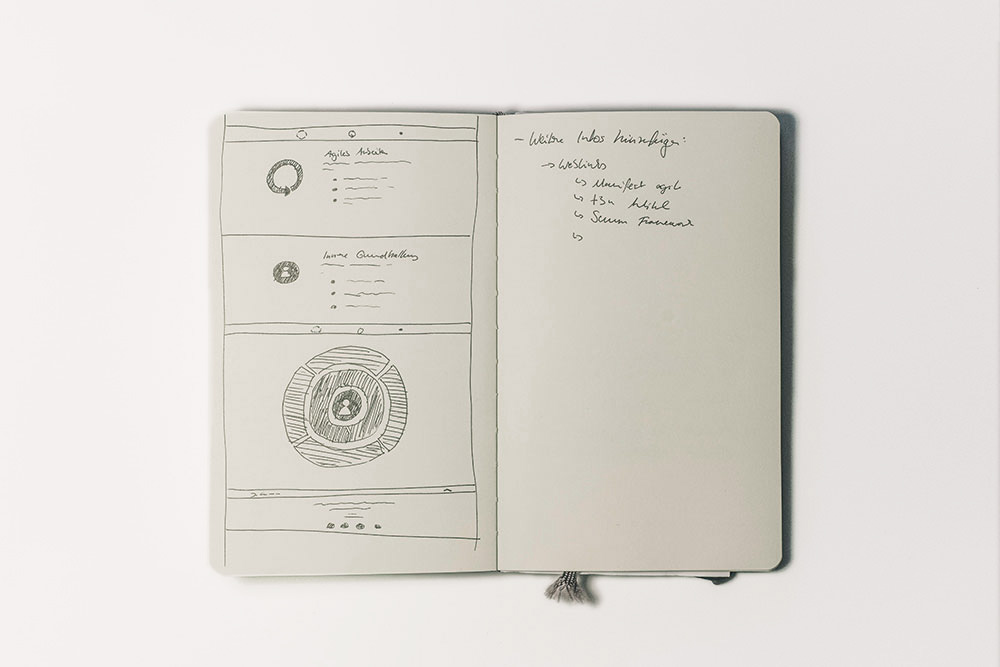 Agiles Arbeiten
Innere Grundhaltung
- Weitere Infos hinzufügen:
→ Weblinks
↳ Manifest agil
↳ t3n Artikel
↳ Scrum Framework
↳